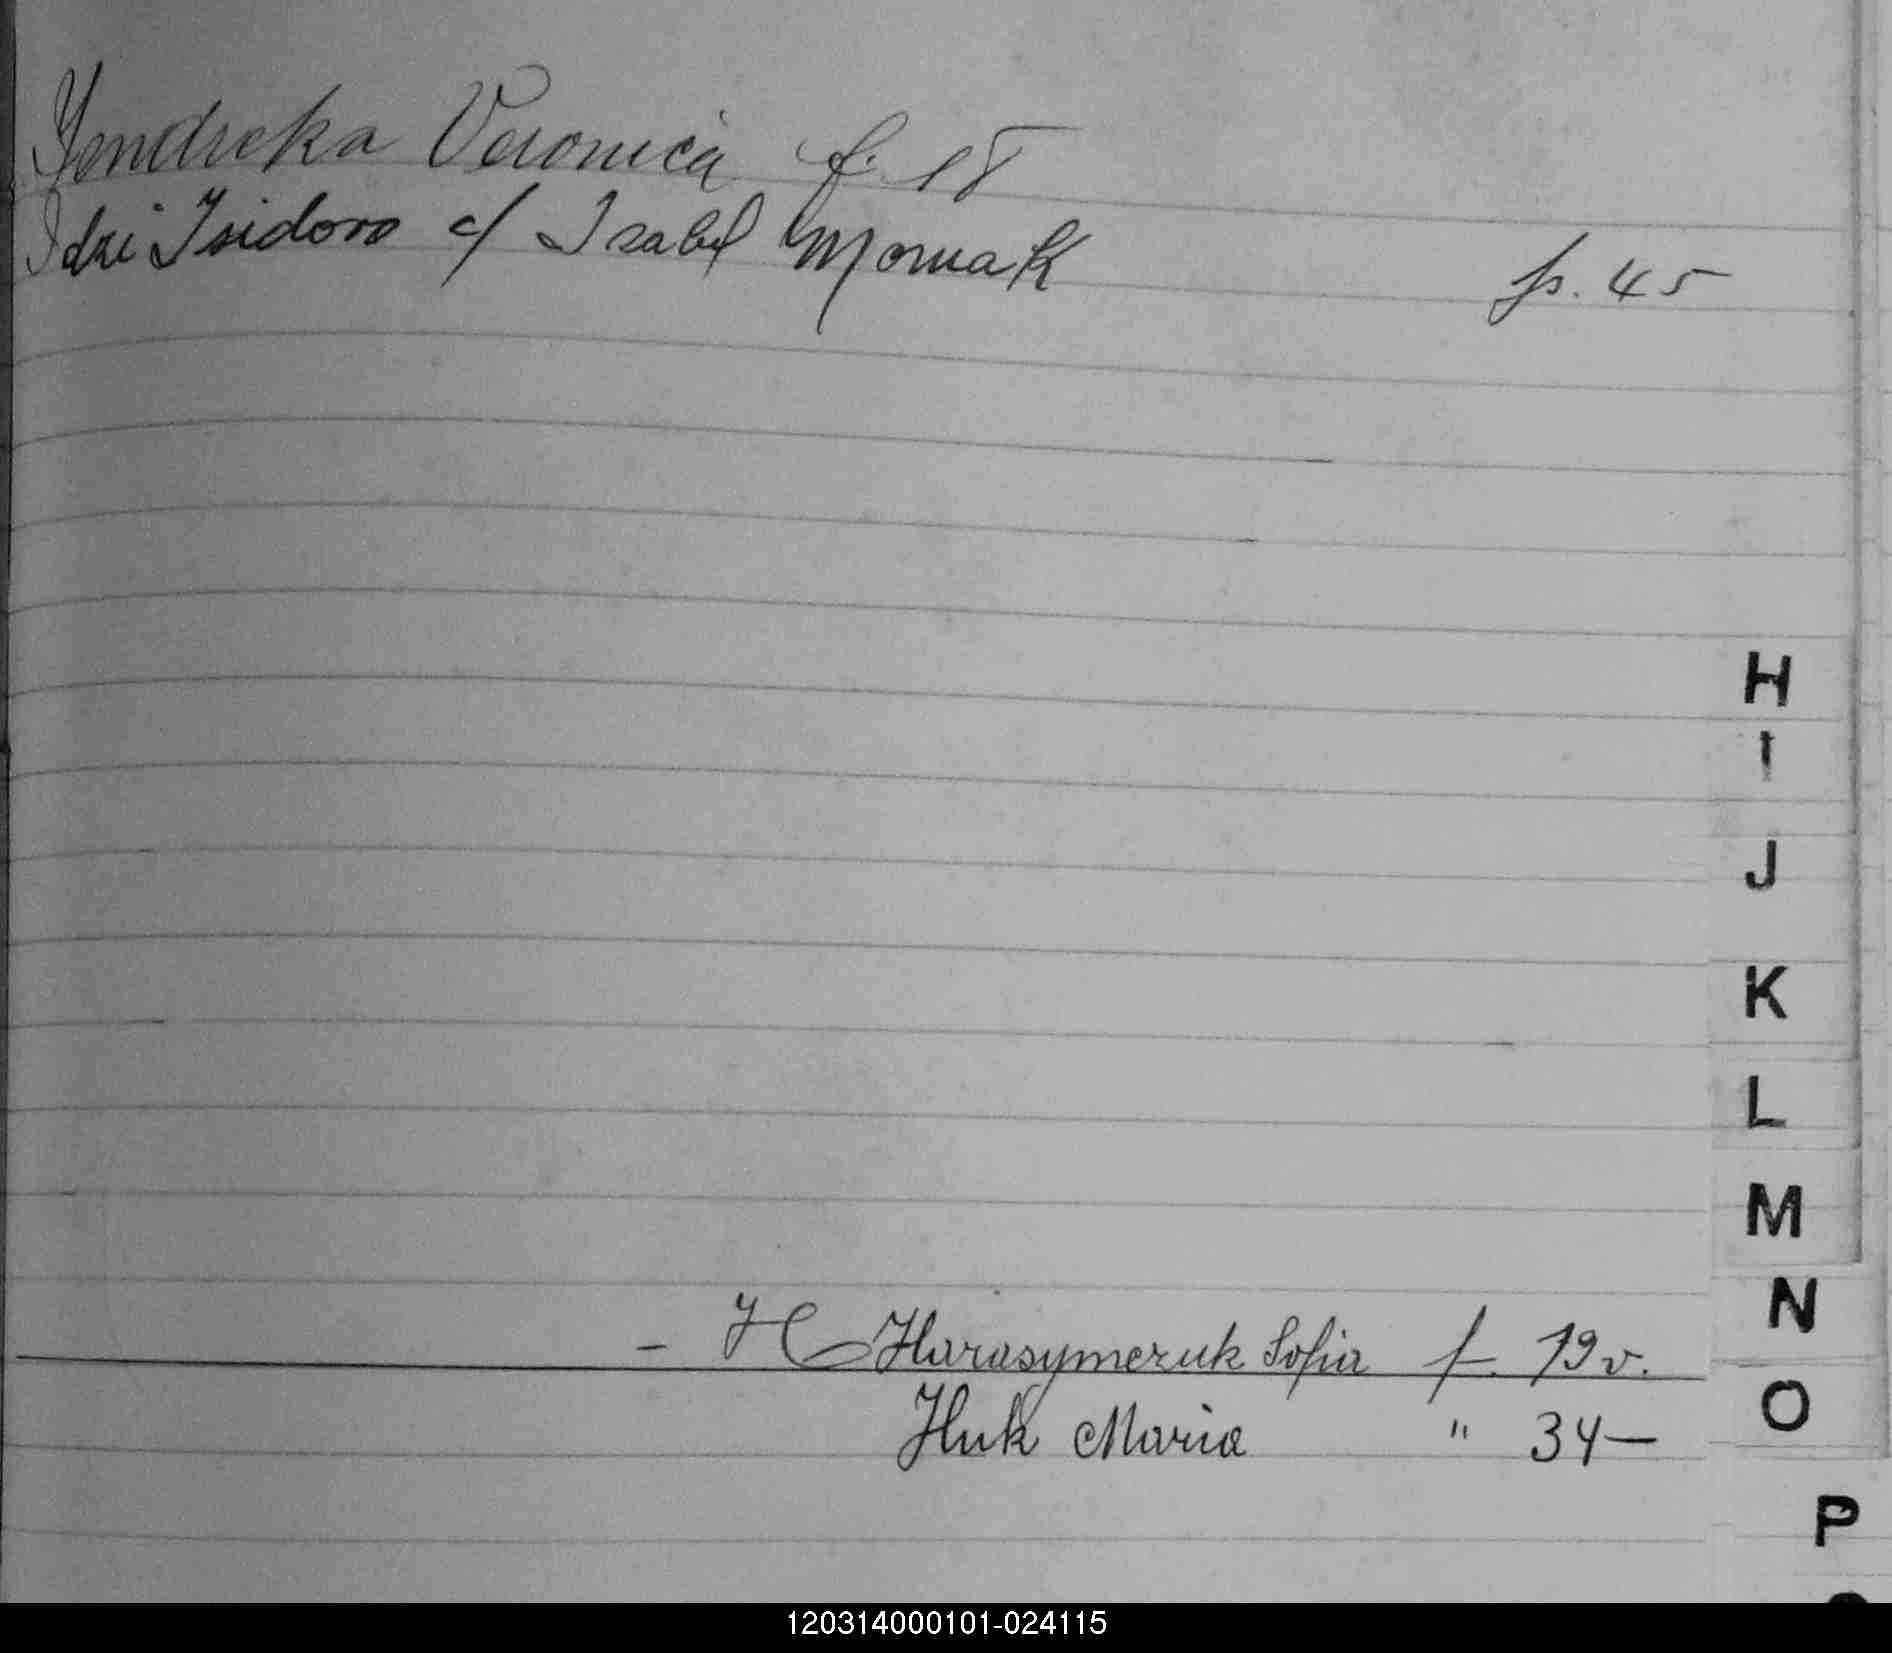 Jendreka Veronica f. 18
Idzi Isidoro c/ Isabel Mornak p. 45
H
I
J
K
L
M
N
- H Harasymczuk Sofia f. 19 v.
O
Huk Maria " 34 —
P
120314000101-024115